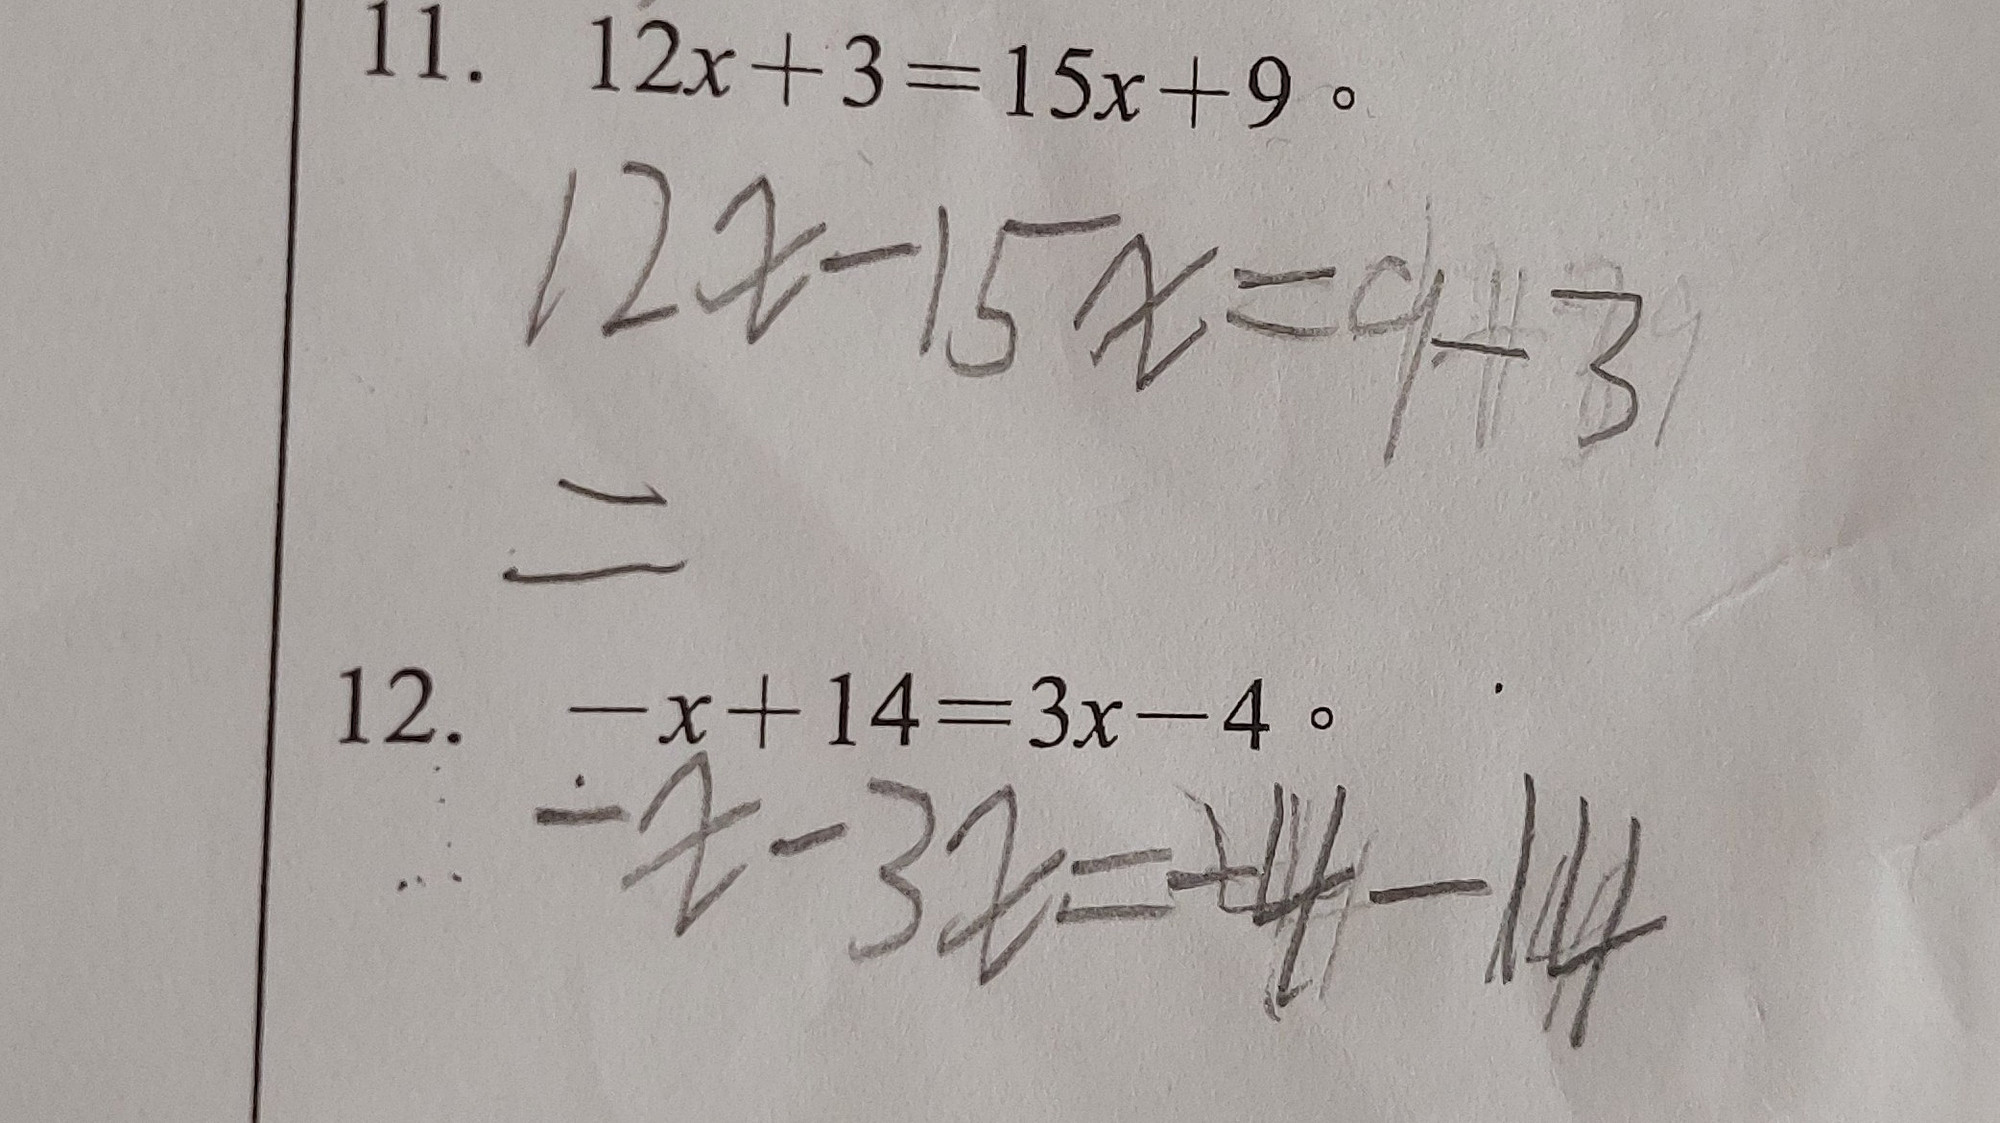 11. 12x+3=15x+9。
12x-15x=9-3
=
12. -x+14=3x-4。
-x-3x=-4-14